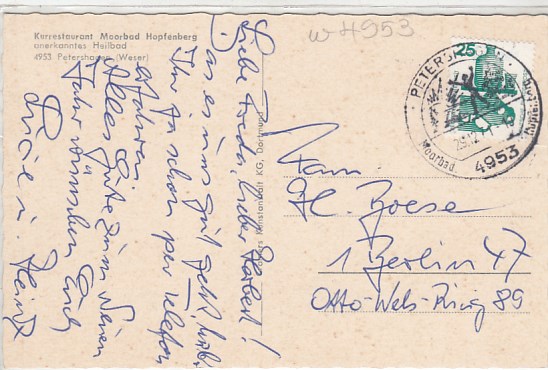 Kurrestaurant Moorbad Hopfenberg
anerkanntes Heilbad
4953 Petershagen (Weser)
W4953
25
PETERSHAGEN
Moorbad
4953
Liebe Gerda, lieber Herbert!
Daß es uns gut geht, habt
Ihr ja schon per Telefon
erfahren.
Alles Gute zum Neuen
Jahr wünschen Euch
Lucie u. Heinz
Kunstanstalt KG, Dortmund
H. Boese
1 Berlin 47
Otto-Wels-Ring 89